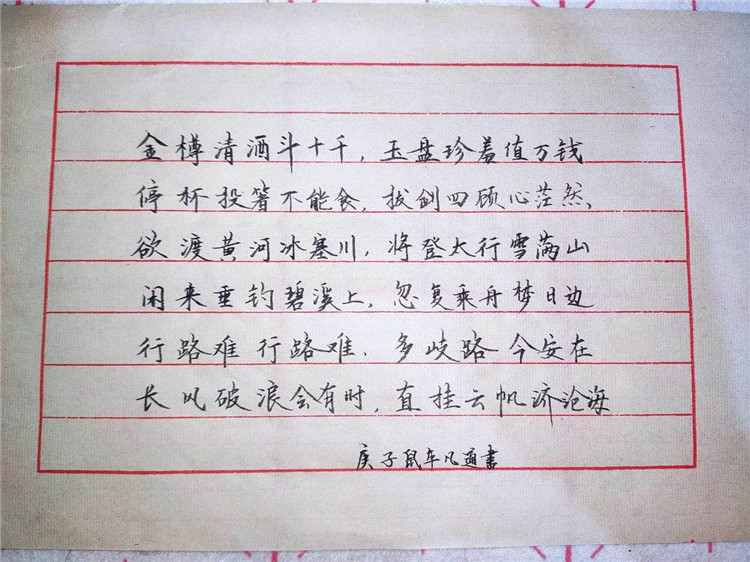 金樽清酒斗十千，玉盘珍羞值万钱
停杯投箸不能食，拔剑四顾心茫然、
欲渡黄河冰塞川，将登太行雪满山
闲来垂钓碧溪上，忽复乘舟梦日边
行路难行路难、多岐路今安在
长风破浪会有时，直挂云帆济沧海
庚子鼠年凡通书